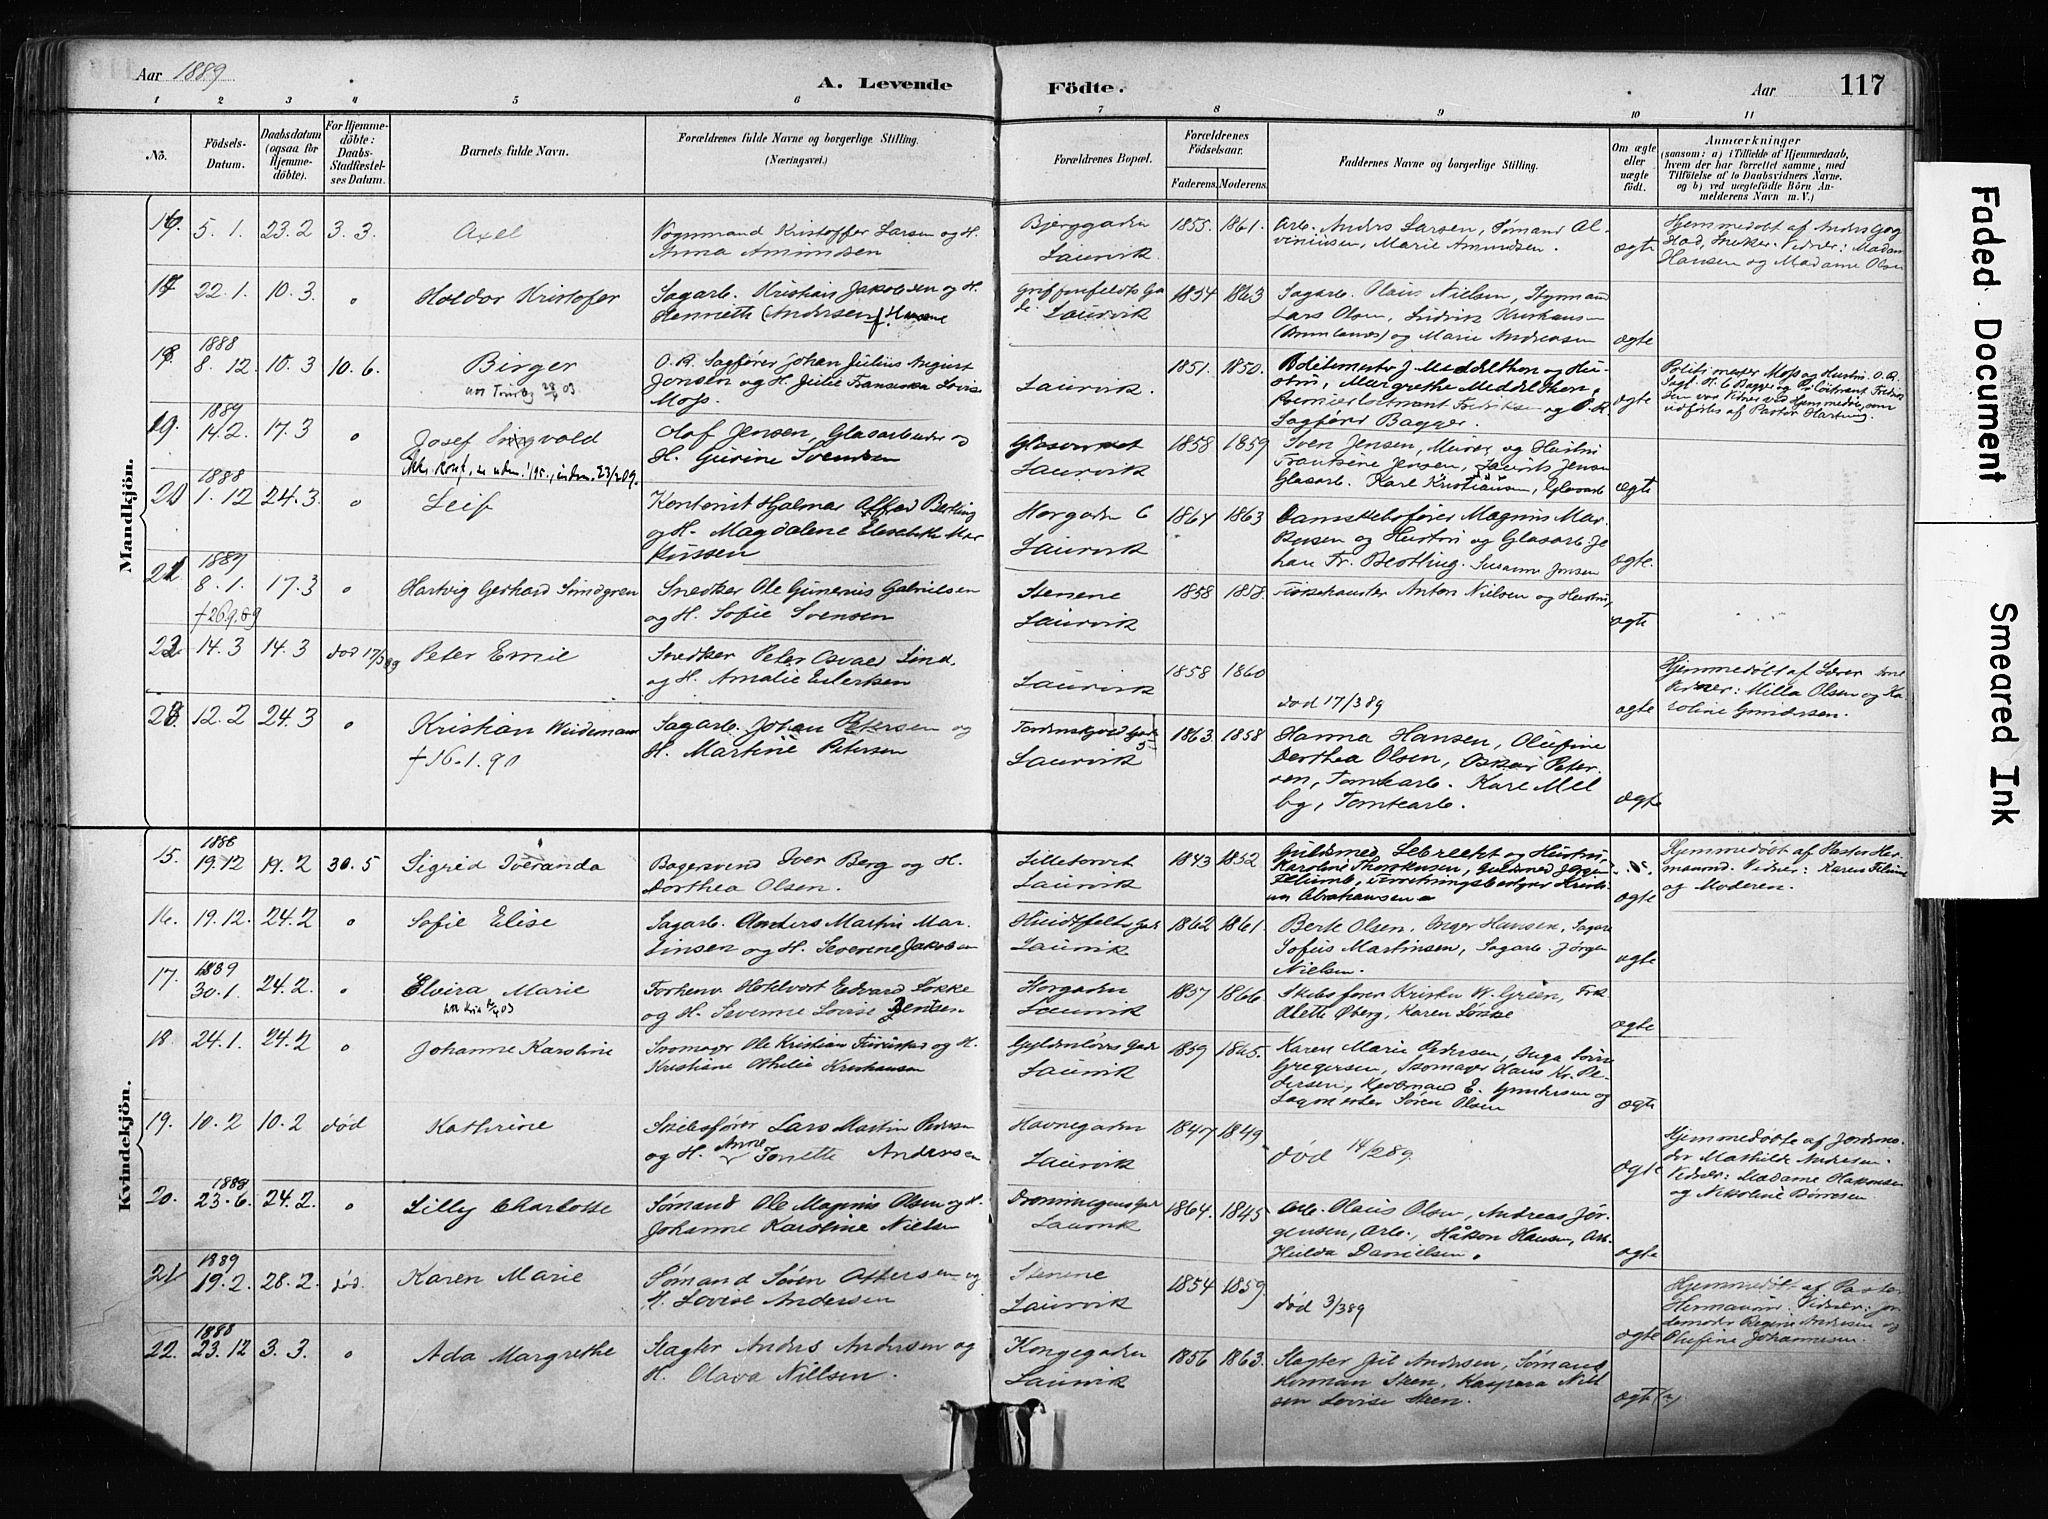 Aar 1889
A. Levende
Födte.
Aar
117
1 2 3 4 5 6 7 8 9 10 11
No.
Födsels-Datum.
Daabsdatum (ogsaa for Hjemme-döbte).
For Hjemme-döbte: Daabs-Stadfæstel-ses Datum.
Barnets fulde Navn.
Forældrenes fulde Navne og borgerlige Stilling.
(Næringsvei.)
Forældrenes Bopæl.
Forældrenes Födselsaar.
Faderens. Moderens.
Faddernes Navne og borgerlige Stilling.
Om ægte eller uægte födt.
Anmærkninger
(saasom: a) i Tilfælde af Hjemmedaab,
hvem der har forrettet samme, med
Tilföielse af to Daabsvidners Navne.
og b) ved uægtefödte Börn An-
melderens Navn m. V.)
Mandkjön.
16. 5.1. 23.2 3.3. Axel
Vognmand Kristoffer Larsen og H.
Anna Amundsen
Bjerggaden
Laurvik.
1855. 1861.
Arb. Anders Larsen, Sømand Al-
viniusen, Marie Amundsen.
ægte
Hjemmedøbt af Anders
Snekker. Vidner: Madam
Hansen og Madame Olsen
17 22.1. 10.3. " Holdor Kristofer
Sagarb. Kristian Jakobsen og H.
Henriette (Andersen) Hansen
Griffenfeldts Ga
de Laurvik
1854 1863
Sagarb. Olaus Nielsen, Styrmand
Lars Olsen, Ludvik Kristiansen
(Brunlanes) og Marie Andreasen
ægte
18. 1888 8.12. 10.3 10.6. Birger
O.R. Sagfører Johan Julius August
Jonsen og H. Julie Fransiska Lovise
Moss.
Laurvik.
1851. 1850.
Politimester J. Meddelthon og Hu-
stru, Margrethe Meddelthon,
Premierløitnant Fredriksen og O.R.
Sagfører Bagger.
ægte
Politimester Moss og Hustru. O.R.
Sagf. H. C Bagger og
sen var Vidner ved Hjemmedåb, som
udførtes af Pastor Hartmng.
19. 1889 14.2. 17.3 " Josef Sigvald
Olaf Jensen, Glasarbeider og
H. Gurine Svendsen
Glasverket
Laurvik
1858 1859
Sven Jensen, Murer og Hustru
Frantsine Jensen, Laurits Jensen
Glasarb. Karl Kristiansen, Glasarb
ægte
20 1888 1.12 24.3 " Leif
Kontorist Hjalmar Alfred Bertling
og H. Magdalene Elisabeth Mar
kussen
Horgaden 6
Laurvik
1864 1863
Damskibsfører Magnus Mar-
kusen og Hustru og Glasarb. Jo
han Fr. Bertling. Susanne Jensen
ægte.
21. 1889 8.1. 17.3 " Hartvig Gerhard
†26.9.89
Snedker Ole Gunerius Gabrielsen
og H. Sofie Svensen
Stenene
Laurvik
1858 1858.
Anton Nielsen og Hustru,
ægte
22. 14.3 14.3 død 17/3 89 Peter Emil
Snedker Peter Osvald Lind.
og H. Amalie Eilertsen
Laurvik
1858 1860
død 17/3 89
ægte
Hjemmedøbt af Lærer
Vidner: Milla Olsen og Ka-
roline Gundersen.
23. 12.2 24.3 " Kristian Weidemann
†16.1.90
Sagarb. Johan Petersen og
H. Martine Petersen
Tordenskjold Gade 5
Laurvik
1863. 1858
Hanna Hansen, Olufine
Dorthea Olsen, Oskar Peter-
sen, Tomtearb. Karl Mel
by, Tomtearb.
ægte
Kvindekjön.
15. 1888 19.12 19.2 30.5 Sigrid Iveranda
Bagersvend Iver Berg og H.
Dorthea Olsen.
Lilletorvet
Laurvik
1843 1852
Guldsmed Lebrecht og Hustru,
Karoline Thorstensen, Guldsmed Jørgen
ægte
Hjemmedøbt af Pastor Her-
maund. Vidner: Karen
og Moderen.
16. 19.12. 24.2 " Sofie Elise
Sagarb. Anders Martin Mar-
tinsen og H. Severine Jakobsen
Huidtfelts Gade
Laurvik
1862 1861.
Berte Olsen, Inger Hansen, Sagarb
Sofus Martinsen, Sagarb. Jörgen
Nielsen.
ægte
17. 1889 30.1. 24.2. " Elvira Marie
Forhenv. Hotelvert Edvard Løkke
og H. Severine Lovise Jensen
Horgaden
Laurvik
1857 1866
Skibsfører Kristen W. Green, Frk
Alette Øberg, Karen Løkke
ægte
18. 24.1. 24.2 " Johanne Karoline
Skomager Ole Kristian Furustad og H.
Kristiane Othilie Kristiansen
Gyldenløves Gade
Laurvik
1859 1865.
Karen Marie Pedersen, Inga
Gregersen, Skomager Hans Kr. Pe-
dersen, E. Gundersen og
Sagmester Søren Olsen
ægte
19. 10.2 10.2 død Kathrine
Skibsfører Lars Martin Pedersen
og H. Anne Tonette Andersen
Havnegaden
Laurvik
1847 1849
død 14/2 89.
ægte
Hjemmedøbte af Jordmo-
der Mathilde Andersen.
Vidner: Madame Hakonsen
og Nikoline Børresen
20. 1888 23.6. 24.2. " Lilly Charlotte
Sømand Ole Magnus Olsen og H.
Johanne Karoline Nielsen
Dronningensgade
Laurvik
1864. 1845
Arb. Olaus Olsen, Andreas Jør-
gensen, Arb., Håkon Hansen, Arb
Hulda Danielsen.
ægte
21 1889 19.2. 28.2. død. Karen Marie
Sømand Søren Attersen og
H. Lovise Andersen
Stenene
Laurvik
1854 1859.
død 3/3 89
ægte
Hjemmedøbt af Pastor
Hermanni. Vidner: Jor-
demoder Regine Andersen og
Olufine Johannesen.
22. 1888 23.12 3.3. " Ada Margrethe
Slagter Anders Andersen og
H. Olava Nielsen.
Kongegaden
Laurvik
1856 1863.
Slagter Jul Andersen, Sømand
Herman Steen, Kaspara Niel
sen Lovise Steen.
ægte (?)
Faded Document
Smeared Ink